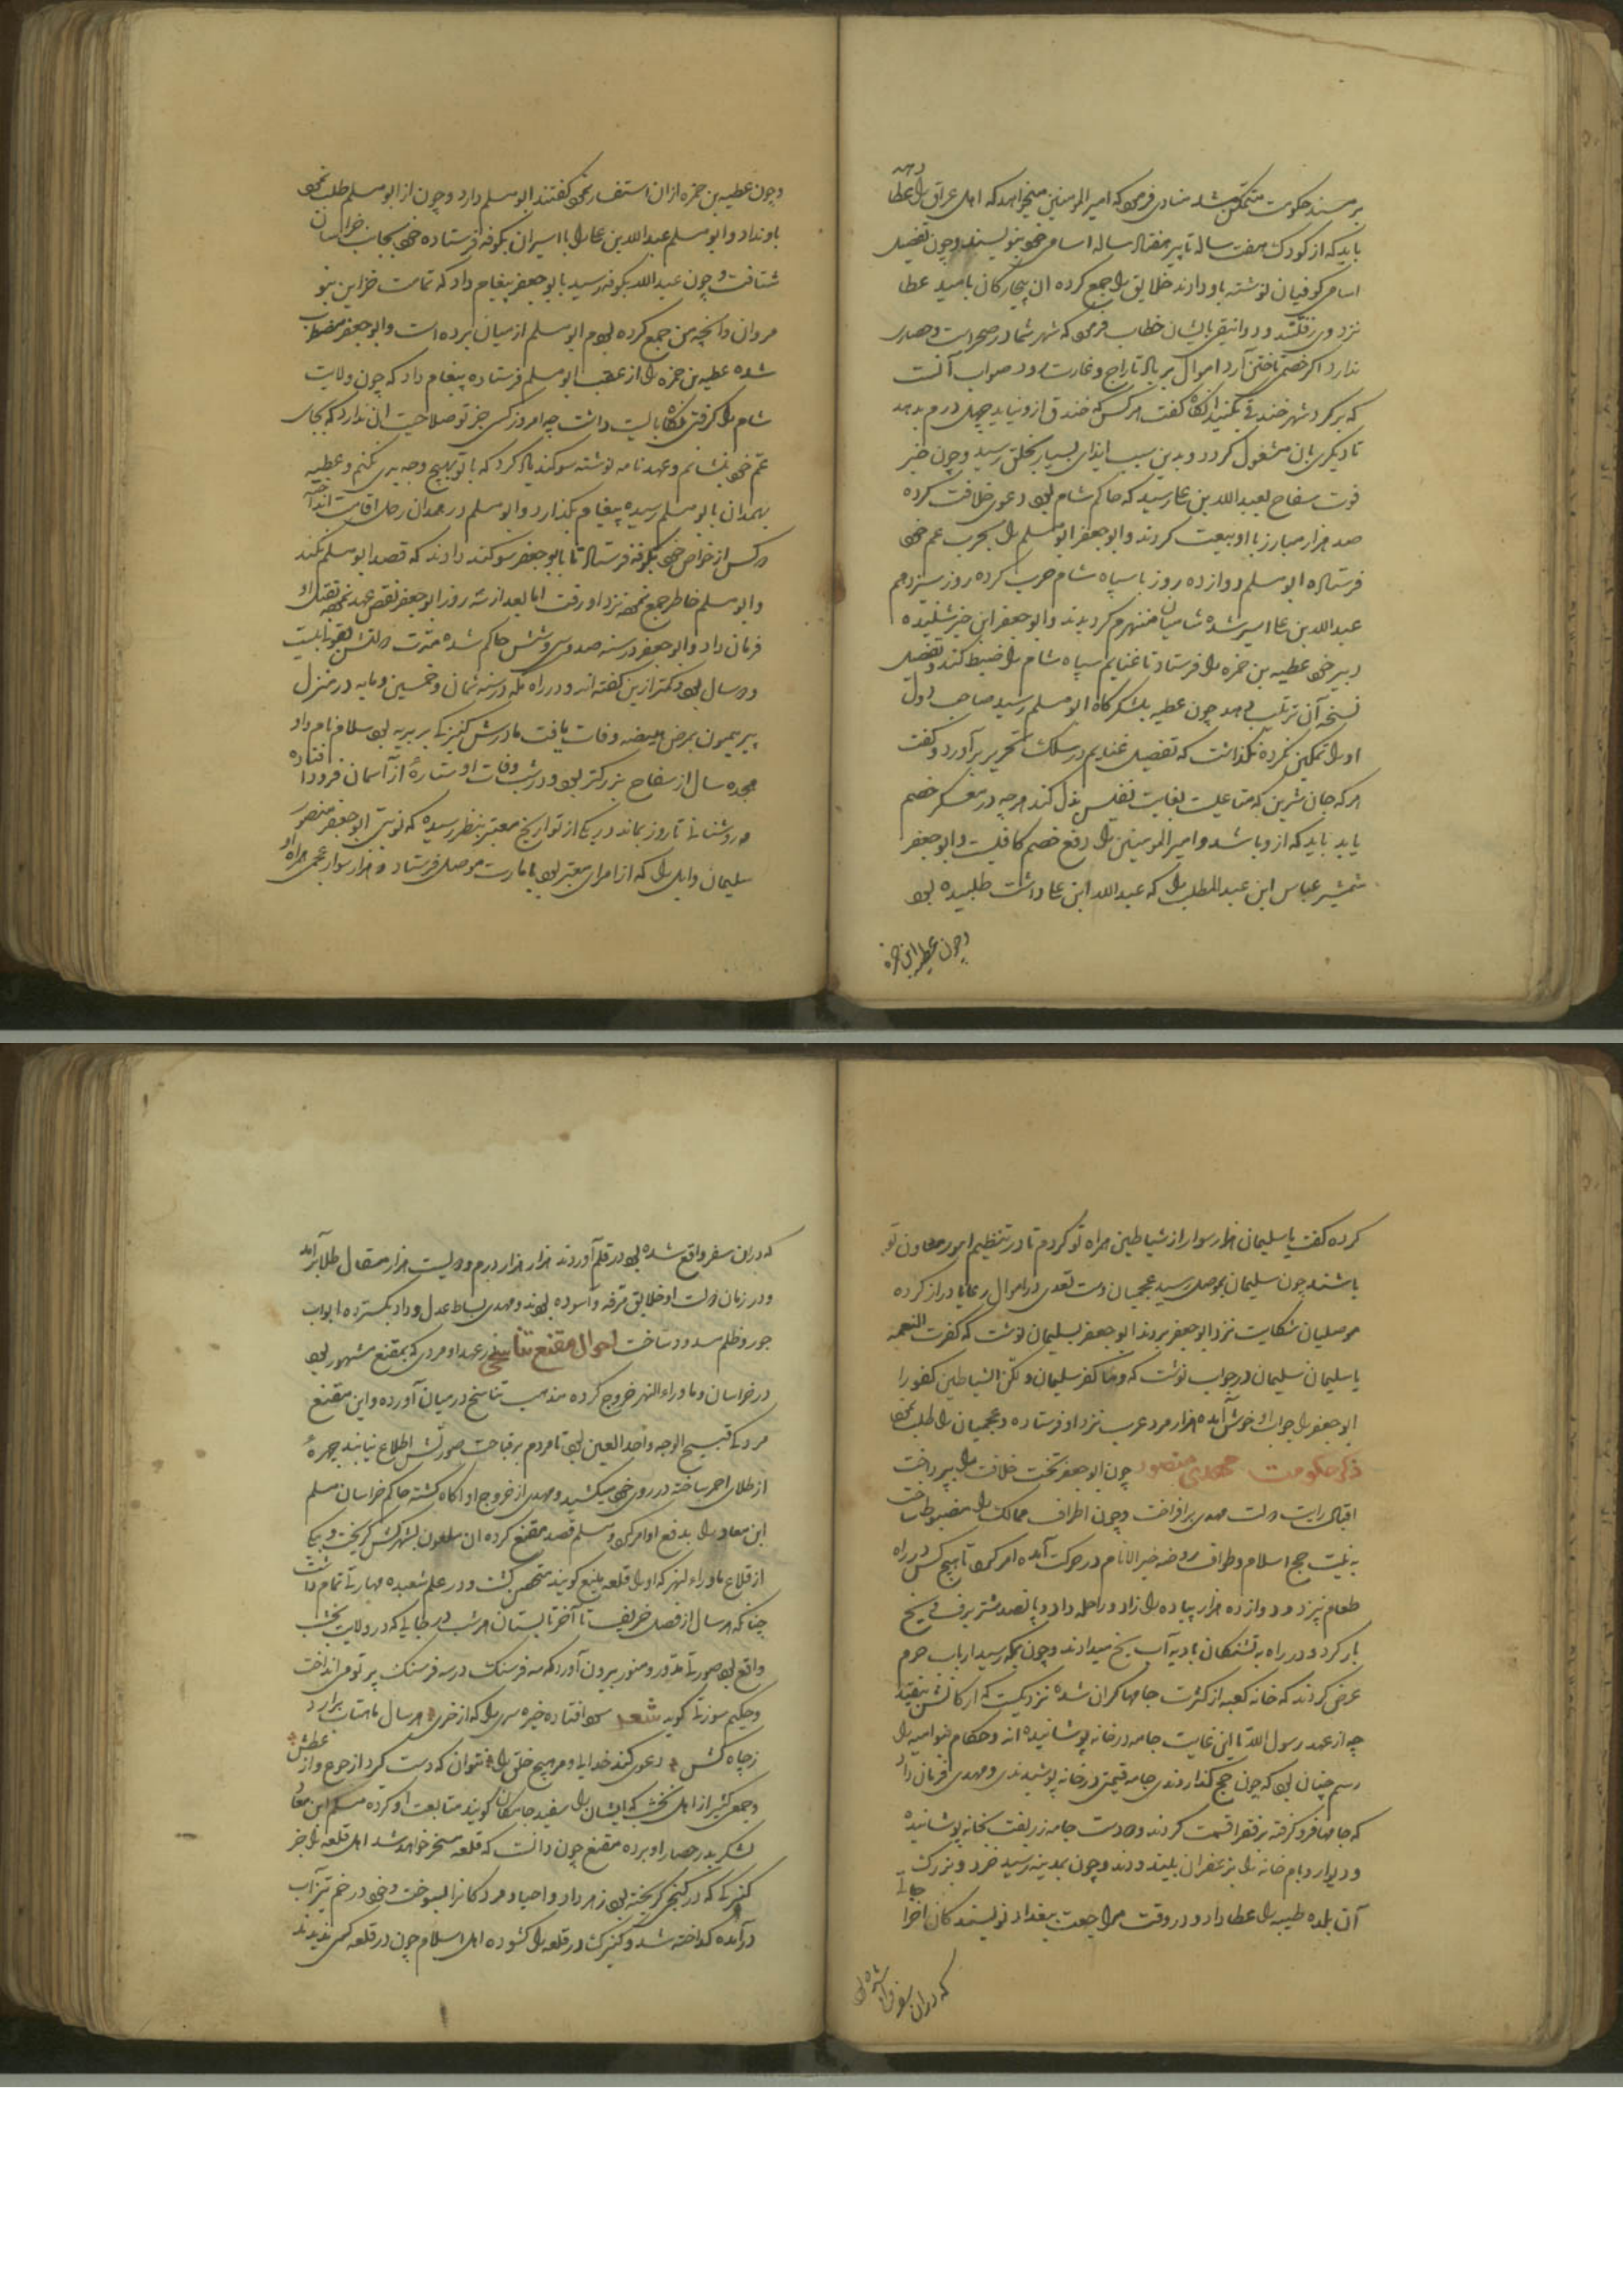 بر مسند حکومت متمکن شد منادی فرمود که امیر المومنین میخواهد که اهل عراق را عطا دهد
باید که از کودک هفت ساله تا پیر هفتاد ساله اسامی خود بنویسند و چون تفصیل
اسامی کوفیان نوشته باو دادند خلایق را جمع کرده ان بیچارکان بامید عطا
نزد وی رفتند و دوانیقی بایشان خطاب فرمود که شهر شما در صحرا است و حصاری
ندارد اکر خصمی تاختن آرد اموال بر باد تاراج و غارت رود صواب آنست
که بر کرد شهر خندقی بکنید انکاه کفت هر کس که خندق ازو نیاید چهل درم بدهد
تا دیکری بان مشغول کردد و بدین سبب ایذای بسیار بخلق رسید و چون خبر
فوت سفاح بعبد الله بن علی رسید که حاکم شام بود دعوی خلافت کرده
صد هزار مبارز با او بیعت کردند و ابو جعفر ابو مسلم را بحرب عم خود
فرستاد ابو مسلم دوازده روز با سپاه شام حرب کرده روز سیزدهم
عبد الله بن علی اسیر شده شامیان منهزم کردیدند و ابو جعفر این خبر شنیده
دبیر خود عطیه بن حمزه را فرستاد تا غنایم سپاه شام را ضبط کند و تفصیل
نسخه آن ترتیب دهد چون عطیه بلشکرکاه ابو مسلم رسید صاحب دول
او را تمکین نکرده نکذاشت که تفصیل غنایم در سلک تحریر برآورد و کفت
هر که جان شرین که متاعیست بغایت نفیس بذل کند هر چه در معسکر خصم
یابد باید که ازو باشد و امیر المومنین را دفع خصم کافیست و ابو جعفر
شمشیر عباس ابن عبد المطلب را که عبد الله ابن علی داشت طلبیده بود
و چون عطیه ابن حمزه
و چون عطیه بن حمزه ازان استفسار نمود کفتند ابو مسلم دارد و چون از ابو مسلم طلب نمود
باو نداد و ابو مسلم عبد الله بن علی را با اسیران بکوفه فرستاده خود بجانب خراسان
شتافت و چون عبد الله بکوفه رسید بابو جعفر پیغام داد که تمامت خزاین بنو
مروان و انچه من جمع کرده بودم ابو مسلم از میان برده است و ابو جعفر مضطرب
شده عطیه بن حمزه را از عقب ابو مسلم فرستاده پیغام داد که چون ولایت
شام را کرفتی نکاه بایست داشت چه امروز کسی جز تو صلاحیت ان ندارد که بجای
عم خود بنشانم و عهد نامه نوشته سوکند یاد کرد که با تو بهیچ وجه بدی نکنم و عطیه
بهمدان بابو مسلم رسیده پیغام بکذارد و ابو مسلم در همدان رحل اقامت انداخته
دو کس از خواص خود بکوفه فرستاد تا بابو جعفر سوکند دادند که قصد ابو مسلم نکند
و ابو مسلم خاطر جمع نموده نزد او رفت اما بعد از سه روز ابو جعفر نقض عهد نموده بقتل او
فرمان داد و ابو جعفر در سنه صد و سی و شش حاکم شده مدت دولتش بقول بیست
و دو سال بود و کمتر ازین کفته اند و در راه مکه در سنه ثمان و خمسین و مایه در منزل
بیر میمون بمرض هیضه وفات یافت مادرش کنیزکی بربریه بود سلامه نام و او
هجده سال از سفاح بزرکتر بود و در شب وفات او ستاره از آسمان فرود افتاده
و روشنائی تا روز بماند در یکی از تواریخ معتبر بنظر رسیده که نوبتی ابو جعفر منصور
سلیمان وابل را که از امرای معتبر بود بامارت موصل فرستاد و هزار سوار عجمی همراه او
کرده کفت یا سلیمان هزار سوار از شیاطین همراه تو کردم تا در تنظیم امور معاون تو
باشند چون سلیمان بموصل رسید عجمیان دست تعدی در اموال رعایا دراز کرده
موصلیان شکایت نزد ابو جعفر بردند ابو جعفر بسلیمان نوشت که کفرت النعمه
یا سلیمان سلیمان در جواب نوشت که و ما کفر سلیمان و لکن الشیاطین کفروا
ابو جعفر را جواب او خوش آمده هزار مرد عرب نزد او فرستاده و عجمیان را طلب نمود
ذکر حکومت مهدی منصور چون ابو جعفر تخت خلافت را بپرداخت
اقبال رایت دولت مهدی برافراخت و چون اطراف ممالک را مضبوط ساخت
به نیت حج اسلام و طواف روضه خیر الانام در حرکت آمده امر کرد تا هیچ کس در راه
طعام نپزد و دوازده هزار پیاده را زاد و راحله داد و پانصد شتر برف و یخ
بار کرد و در راه به تشنکان بادیه آب یخ میدادند و چون بمکه رسید ارباب حرم
عرض کردند که خانه کعبه از کثرت جامها کران شده نزدیکست که ارکانش بیفتد
چه از عهد رسول الله تا این غایت جامه در خانه پوشانیده اند و حکام بنو امیه را
رسم چنان بود که چون حج کذاردندی جامه قیمتی در خانه پوشیدندی و مهدی فرمان داد
که جامها فرو کرفته بر فقرا قسمت کردند و دو دست جامه زربفت بخانه پوشانیده
و دیوار و بام خانه را بزعفران بلیندودند و چون بمدینه رسید خرد و بزرک
آن بلده طیبه را عطا داد و در وقت مراجعت ببغداد نویسندکان اخراجاتی
که دران سفر واقع شده بود
که دران سفر واقع شده بود در قلم آوردند هزار هزار درم و دویست هزار مثقال طلا برآمد
و در زمان دولت او خلایق مرفه و آسوده بودند و مهدی بساط عدل و داد بکسترده ابواب
جور و ظلم مسدود ساخت احوال مقنع تناسخی در عهد او مردی که بمقنع مشهور بود
در خراسان و ماوراء النهر خروج کرده مذهب تناسخ در میان آورده و این مقنع
مردکی قبیح الوجه واحد العین بود تا مردم بر قباحت صورتش اطلاع نیابند چهره
از طلای احمر ساخته در روی خود میکشید و مهدی از خروج او اکاه کشته حاکم خراسان مسلم
ابن معاد را بدفع او امر کرد و مسلم قصد مقنع کرده ان ملعون بشهر کش کریخت و بیکی
از قلاع ماوراء لنهر که او را قلعه بلنیع کویند متحصن کشت و در علم شعبده مهارتی تمام داشت
چنانکه هر سال از فصل خریف تا آخر تابستان هر شب در چاهی که در ولایت نخشب
واقع بود صورتی مدور و منور بیرون آوردی که سه فرسنک در سه فرسنک پرتو می انداخت
و حکیم سوزنی کوید شعر افتاده خیره سری را که از خری هر سال ماهتاب برارد
ز چاه کش دعوی کند خدایی و مر هیچ خلق را نتوان که دست کرد از جوع و از عطش
و جمعی کثیر از اهل نخشب که ایشان را سفید جامکان کویند متابعت او کرده مسلم ابن معاد
لشکر بدر حصار او برده مقنع چون دانست که قلعه مسخر خواهد شد اهل قلعه را جز
کنیزکی که در کنجی کریخته بود زهر داد و احیا و مردکان را بسوخت و خود در خم تیزاب
درآمده کداخته شد و کنیزک در قلعه را کشوده اهل اسلام چون در قلعه کسی ندیدند